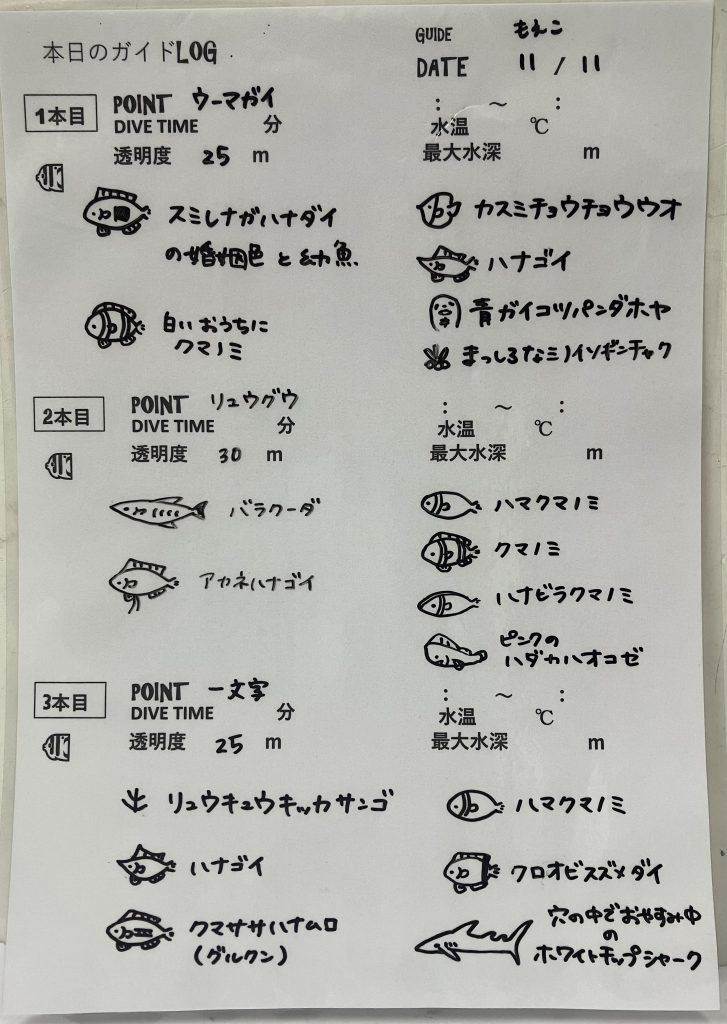 本日のガイドLOG
GUIDE もえこ
DATE 11 / 11
1本目
POINT ウーマガイ
DIVE TIME 分
透明度 25 m
: ～ :
水温 ℃
最大水深 m
スミレナガハナダイ
の婚姻色と幼魚.
白いおうちに
クマノミ
カスミチョウチョウウオ
ハナゴイ
青ガイコツパンダホヤ
まっしろなミノイソギンチャク
2本目
POINT リュウグウ
DIVE TIME 分
透明度 30 m
: ～ :
水温 ℃
最大水深 m
バラクーダ
アカネハナゴイ
ハマクマノミ
クマノミ
ハナビラクマノミ
ピンクの
ハダカハオコゼ
3本目
POINT 一文字
DIVE TIME 分
透明度 25 m
: ～ :
水温 ℃
最大水深 m
リュウキュウキッカサンゴ
ハナゴイ
クマササハナムロ
(グルクン)
ハマクマノミ
クロオビスズメダイ
穴の中でおやすみ中
の
ホワイトチップシャーク